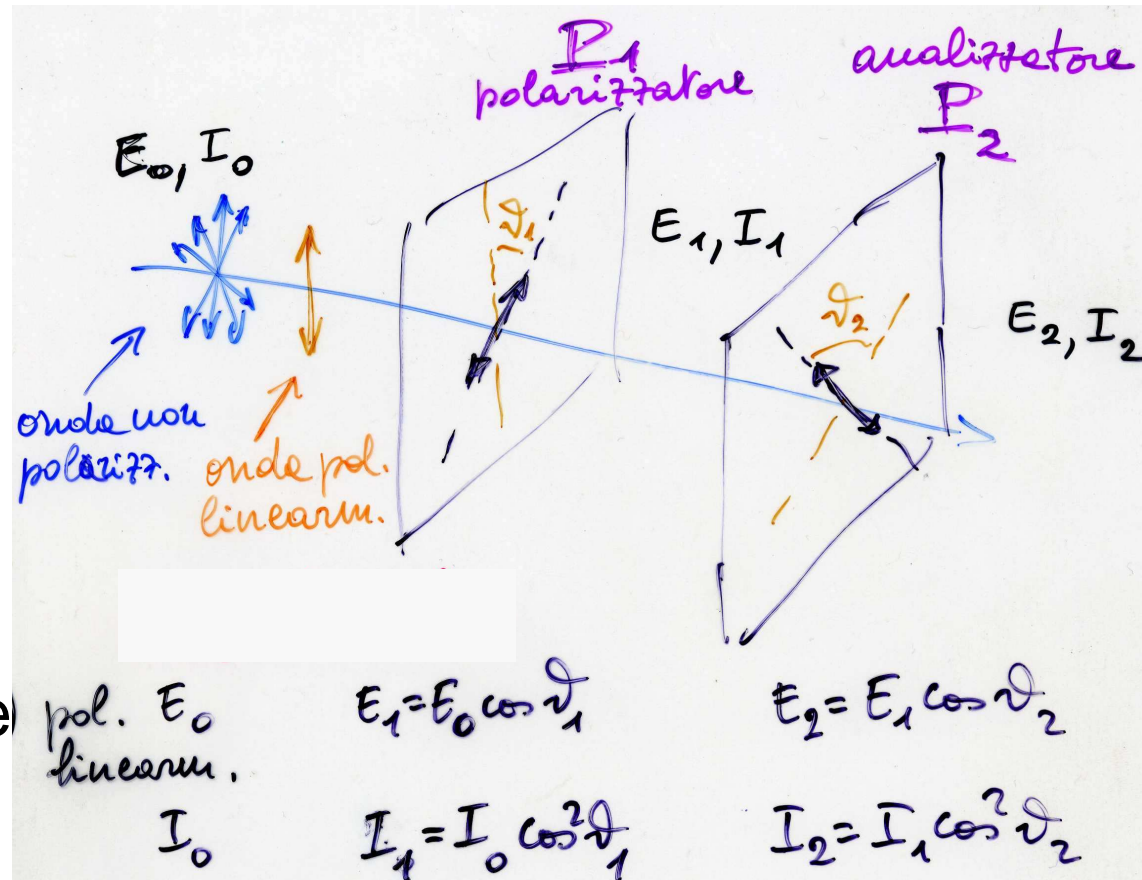 P1
polarizzatore
analizzatore
P2
E₀, I₀
ϑ₁
E₁, I₁
ϑ₂
E₂, I₂
onda non
polarizz.
onda pol.
linearm.
e)
pol. E₀
linearm.
E₁=E₀ cos ϑ₁
E₂= E₁ cos ϑ₂
I₀
I₁ = I₀ cos²ϑ₁
I₂= I₁ cos²ϑ₂